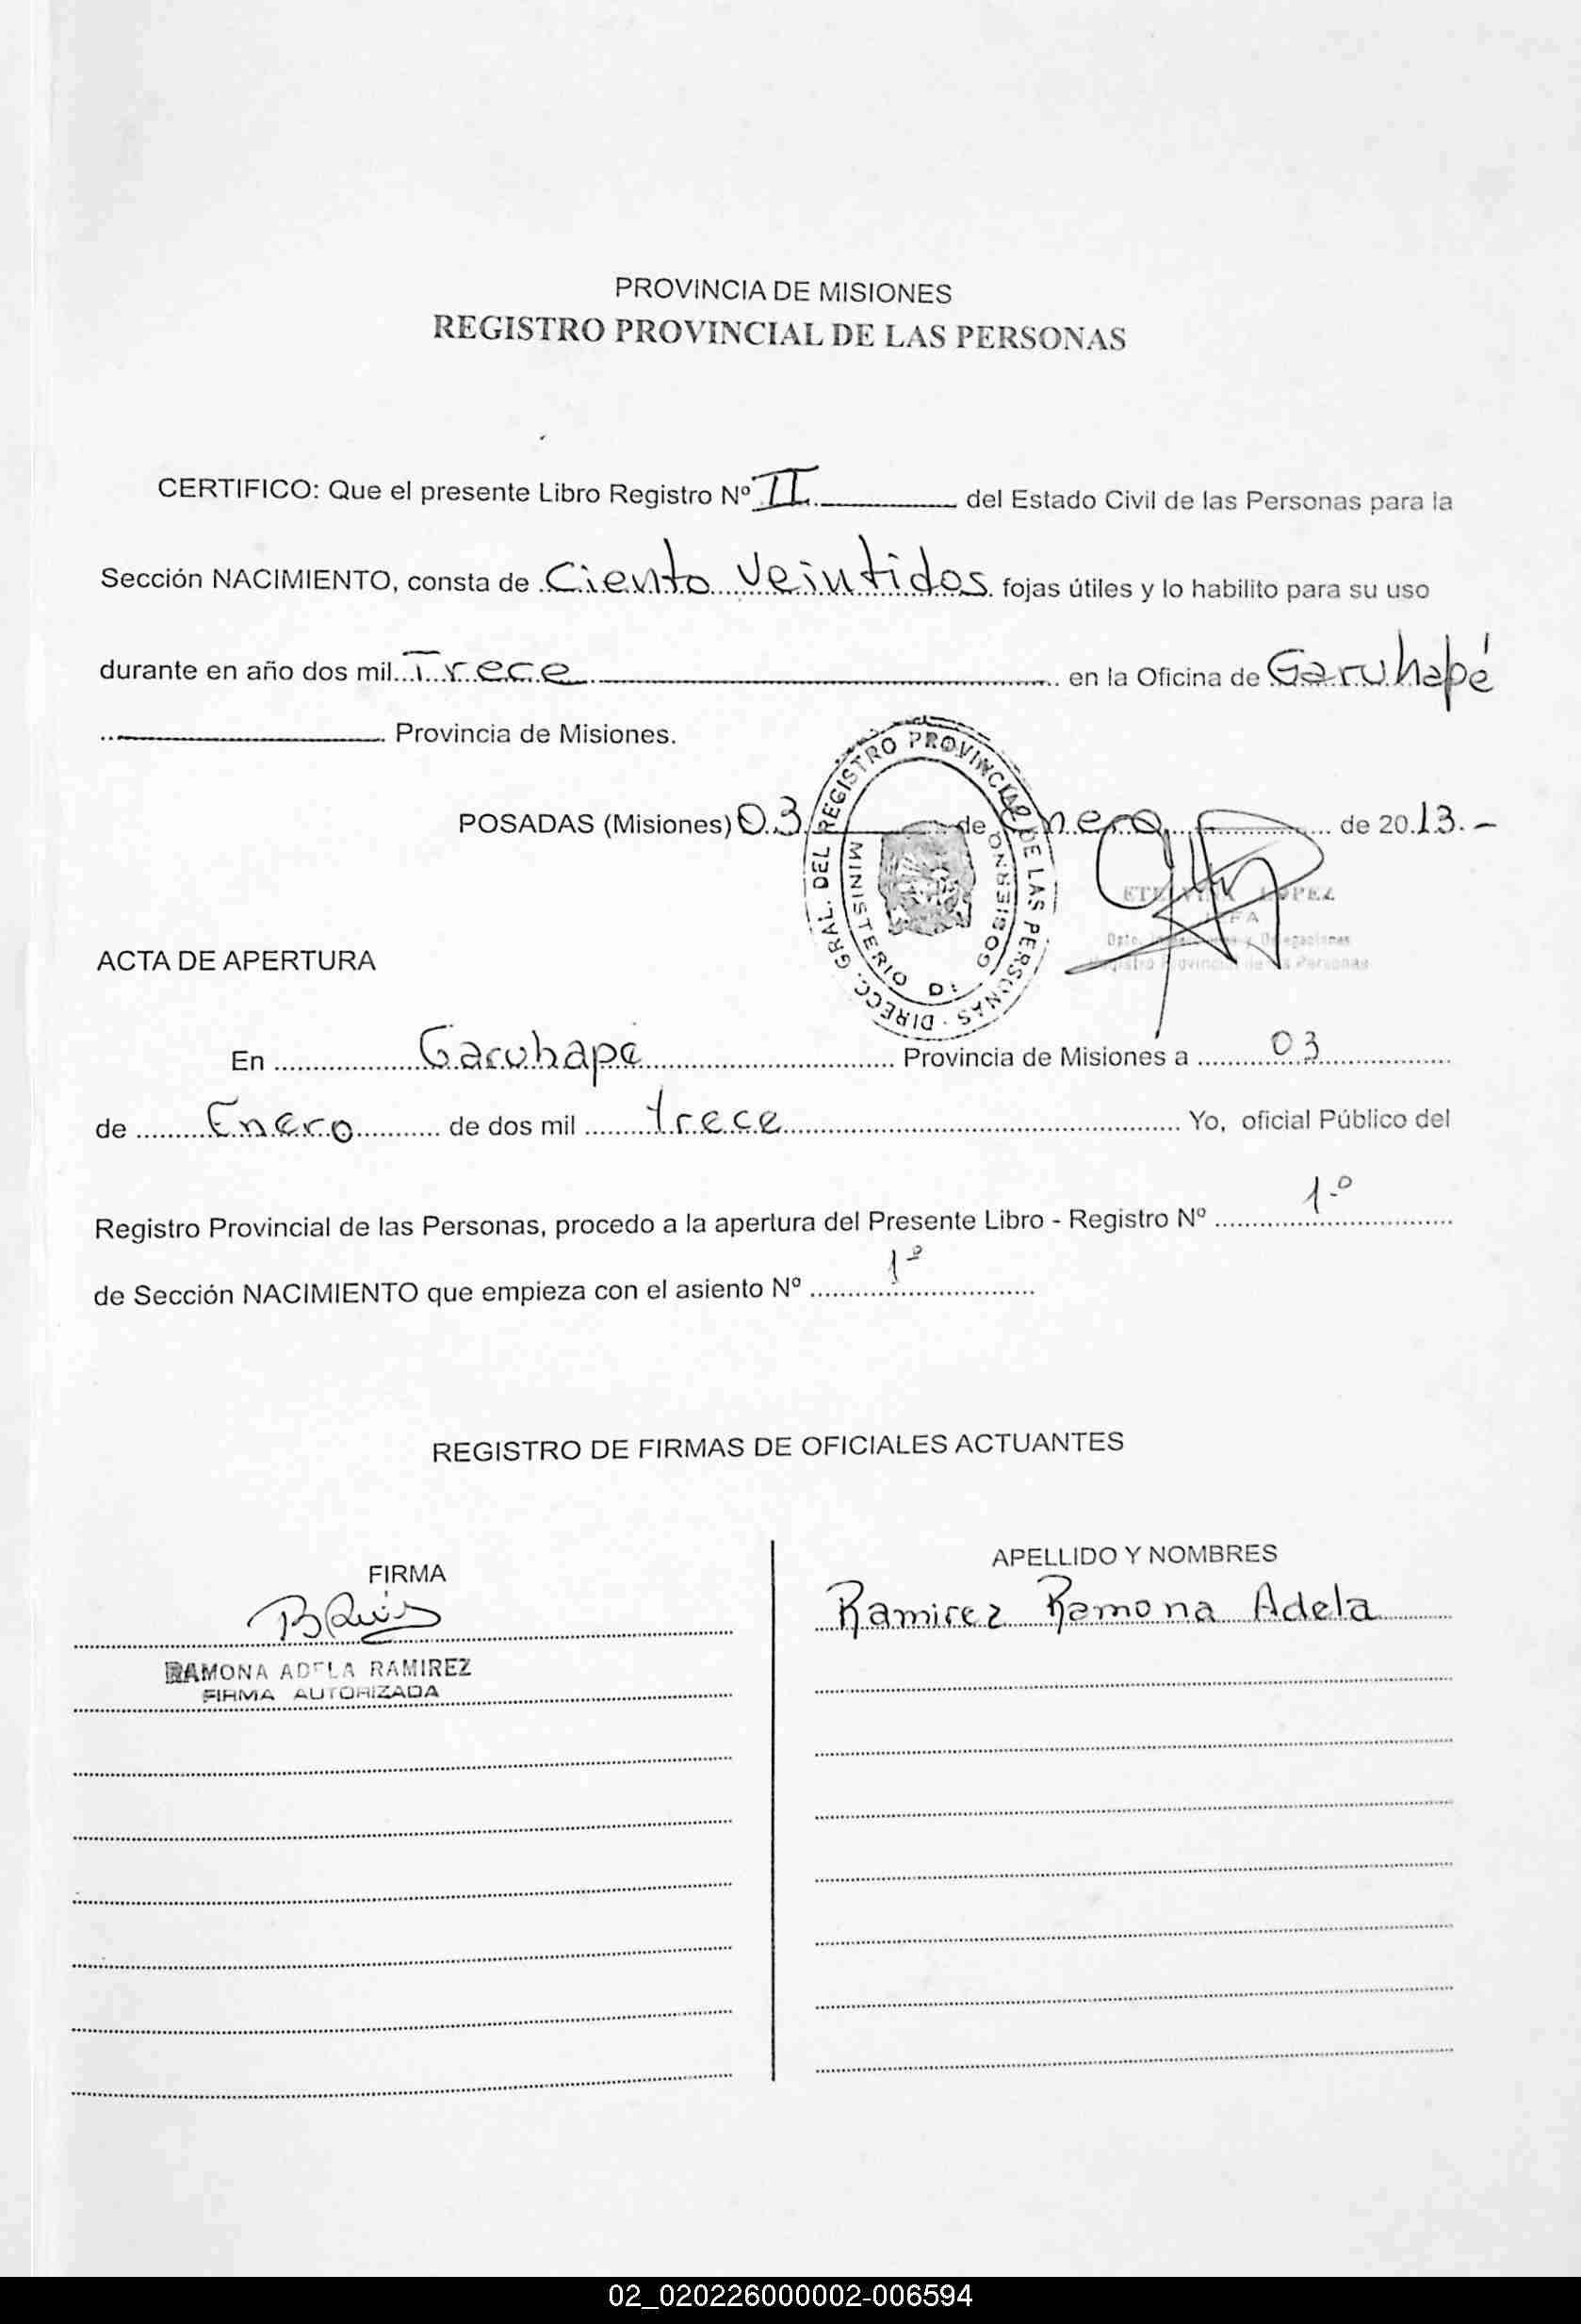 PROVINCIA DE MISIONES
REGISTRO PROVINCIAL DE LAS PERSONAS
CERTIFICO: Que el presente Libro Registro Nº II del Estado Civil de las Personas para la
Sección NACIMIENTO, consta de Ciento Veintidos fojas útiles y lo habilito para su uso
durante en año dos mil Trece en la Oficina de Garuhapé
Provincia de Misiones.
POSADAS (Misiones) 03 de Enero de 2013.-
DIRECC. GRAL. DEL REGISTRO PROVINCIAL DE LAS PERSONAS
MINISTERIO DE GOBIERNO
LOPEZ
Registro Provincial de las Personas
ACTA DE APERTURA
En Garuhape Provincia de Misiones a 03
de Enero de dos mil trece Yo, oficial Público del
Registro Provincial de las Personas, procedo a la apertura del Presente Libro - Registro Nº 1-º
de Sección NACIMIENTO que empieza con el asiento Nº 1º
REGISTRO DE FIRMAS DE OFICIALES ACTUANTES
FIRMA
APELLIDO Y NOMBRES
Ramirez Ramona Adela
RAMONA ADELA RAMIREZ
FIRMA AUTORIZADA
02_020226000002-006594